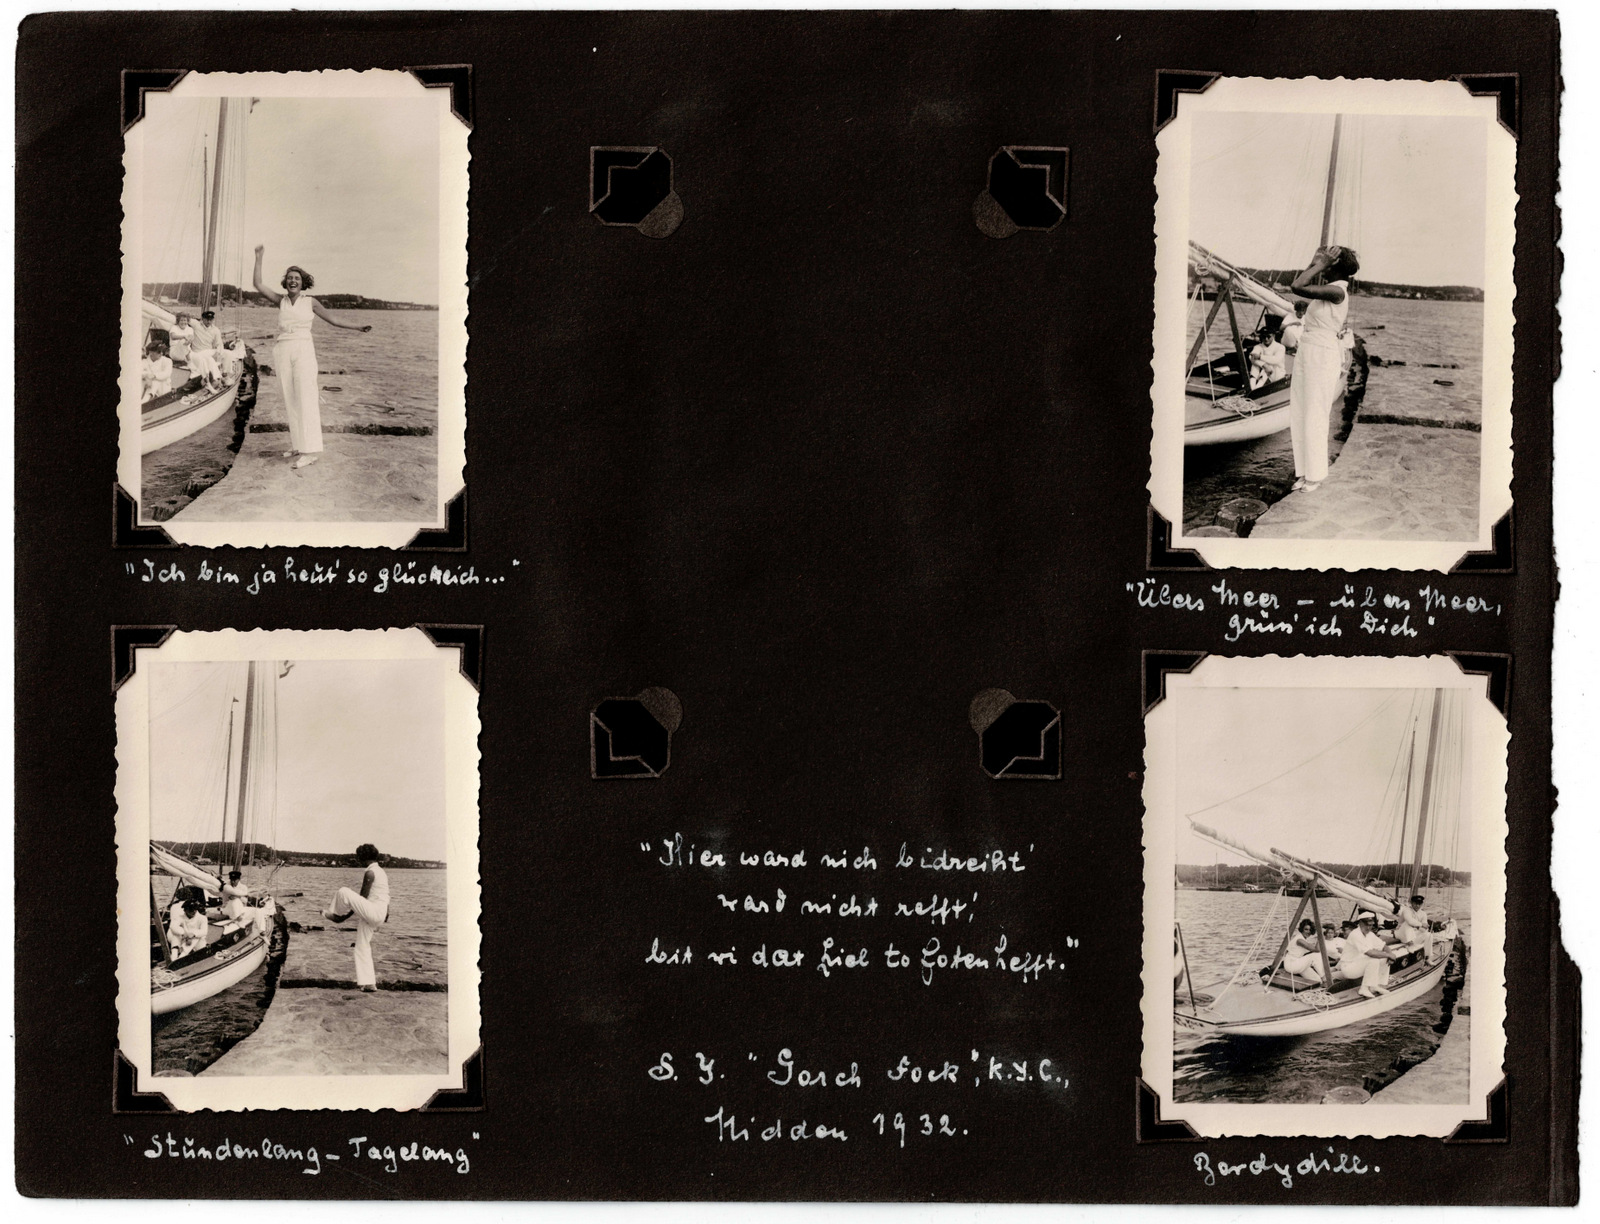 "Ich bin ja heut' so glücklich..."
"Übers Meer – übers Meer,
grüss' ich Dich"
"Hier ward nich bidreiht'
ward nicht refft'
bit wi dat Ziel to
S. Y. "Gorch Fock", K.Y.C.,
Nidden 1932.
"Stundenlang – Tagelang"